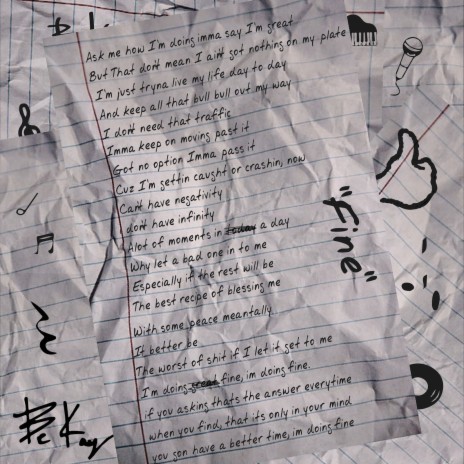 Ask me how I'm doing imma say I'm great
But That don't mean I ain't got nothing on my plate
I'm just tryna live my life day to day
And keep all that bull bull out my way
I don't need that traffic
Imma keep on moving past it
Got no option Imma pass it
Cuz I'm gettin caught or crashin, now
Can't have negativity
don't have infinity
Alot of moments in today a day
Why let a bad one in to me
Especially if the rest will be
The best recipe of blessing me
With some peace meantally
It better be
The worst of shit if I let it get to me
I'm doing great fine, im doing fine.
if you asking thats the answer everytime
when you find, that its only in your mind
you gon have a better time, im doing fine
"Fine"
Be Kay